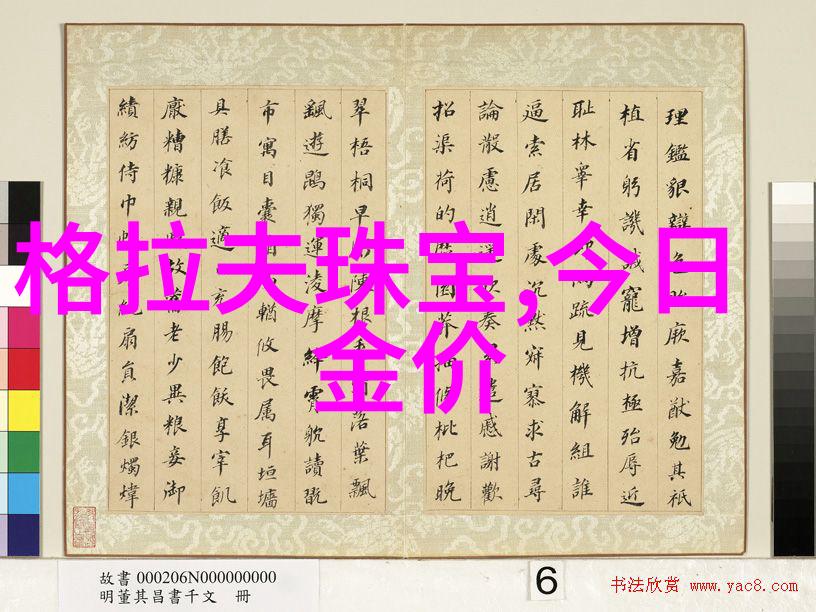 理鑑貌辯色貽厥嘉猷勉其祗
植省躬譏誡寵增抗極殆辱近
耻林睾幸即疏見機解組誰
逼索居閑處沉默寂寥求古尋
論散慮逍遙欣奏累遣慼謝歡
招渠荷的歷園莽抽條枇杷晚
翠梧桐早凋陳根委落葉飄
颻遊鵾獨運凌摩絳霄躭讀翫
市寓目囊輶攸畏属耳垣墻
具膳飡飯適充腸飽飫享宰飢
厭糟糠親故舊老少異粮妾御
績紡侍巾扇員潔銀燭煒
格拉夫珠宝,今日
金价
故書 000206N000000000
明董其昌書千文 冊
6
书法欣赏 www.yac8.com